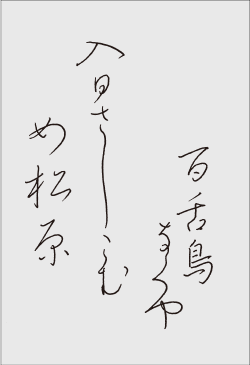 百舌鳥
なくや
入日さしこむ
女松原